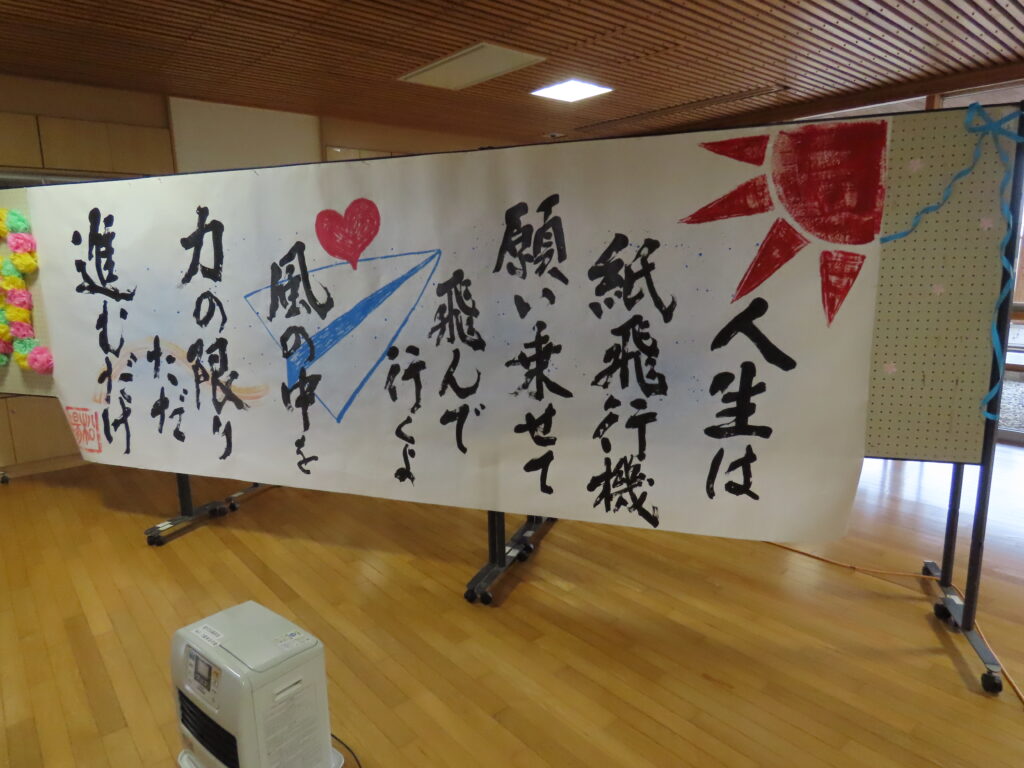 人生は
紙飛行機
願い乗せて
飛んで
行くよ
風の中を
力の限り
ただ
進むだけ
松陽